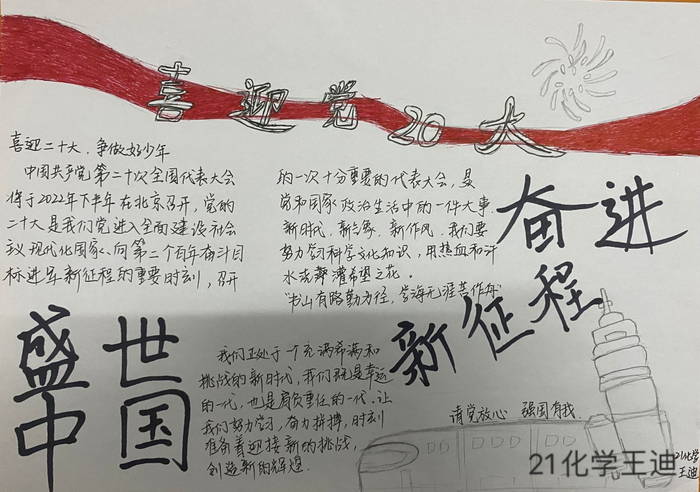 喜迎党20大
喜迎二十大,争做好少年
中国共产党第二十次全国代表大会
将于2022年下半年在北京召开,党的
二十大是我们党进入全面建设社会
主义现代化国家、向第二个百年奋斗目
标进军新征程的重要时刻,召开
的一次十分重要的代表大会,是
党和国家政治生活中的一件大事
新时代,新气象,新作风,我们要
努力学习科学文化知识,用热血和汗
水浇灌希望之花。
书山有路勤为径,学海无涯苦作舟
奋进
新征程
盛世
中国
我们正处于一个充满希满和
挑战的新时代,我们既是幸运
的一代,也是肩负重任的一代.让
我们努力学习,奋力拼搏,时刻
准备着迎接新的挑战,
创造新的辉煌.
请党放心 强国有我
21化学
王迪
21化学王迪